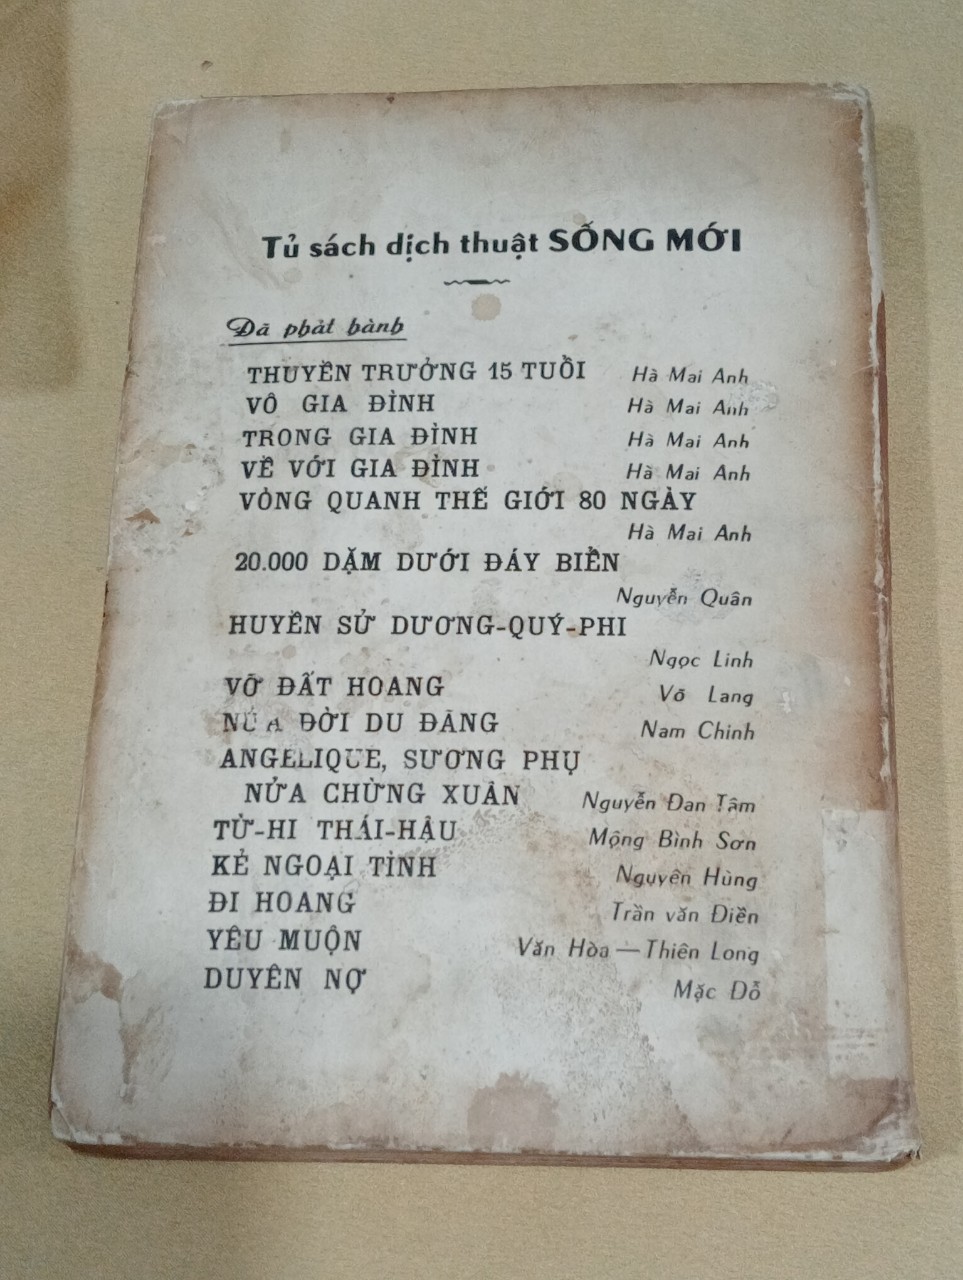 Tủ sách dịch thuật SỐNG MỚI
Đã phát hành
THUYỀN TRƯỞNG 15 TUỔI Hà Mai Anh
VÔ GIA ĐÌNH Hà Mai Anh
TRONG GIA ĐÌNH Hà Mai Anh
VỀ VỚI GIA ĐÌNH Hà Mai Anh
VÒNG QUANH THẾ GIỚI 80 NGÀY
Hà Mai Anh
20.000 DẶM DƯỚI ĐÁY BIỂN
Nguyễn Quân
HUYỀN SỬ DƯƠNG-QUÝ-PHI
Ngọc Linh
VỠ ĐẤT HOANG Võ Lang
NỬA ĐỜI DU ĐÃNG Nam Chinh
ANGÉLIQUE, SƯƠNG PHỤ
NỬA CHỪNG XUÂN Nguyễn Đan Tâm
TỪ-HI THÁI-HẬU Mộng Bình Sơn
KẺ NGOẠI TÌNH Nguyên Hùng
ĐI HOANG Trần văn Điền
YÊU MUỘN Văn Hòa — Thiên Long
DUYÊN NỢ Mặc Đỗ